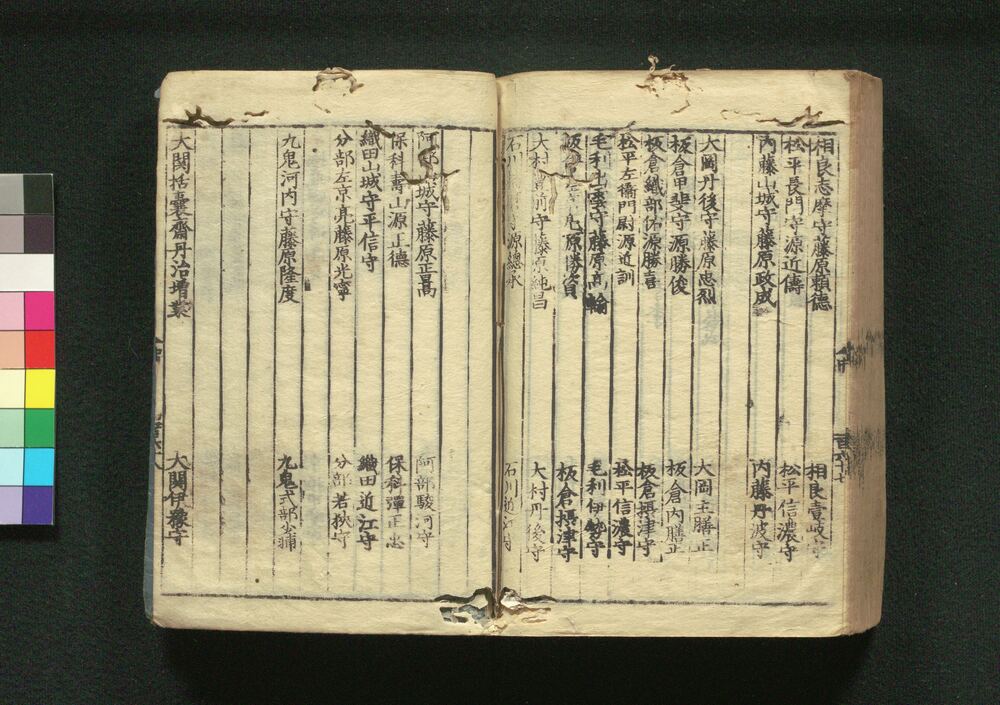 相良志摩守藤原頼徳　相良壹岐守
松平長門守源近儔　松平信濃守
内藤山城守藤原政成　内藤丹波守
大岡丹後守藤原忠烈　大岡主膳正
板倉甲斐守源勝俊　板倉内膳正
板倉織部佑源勝喜　板倉摂津守
松平左衞門尉源近訓　松平信濃守
毛利出雲守藤原高翰　毛利伊勢守
板倉　源勝　板倉摂津守
大村　前守藤原純昌　大村丹後守
石川　源總承　石川近江守
阿部　城守藤原正　阿部駿河守
保科　山源正徳　保科彈正忠
織田山城守平信守　織田近江守
分部左京亮藤原光寧　分部若狭守
九鬼河内守藤原隆度　九鬼式部少輔
大関括囊齋丹治増業　大関伊豫守